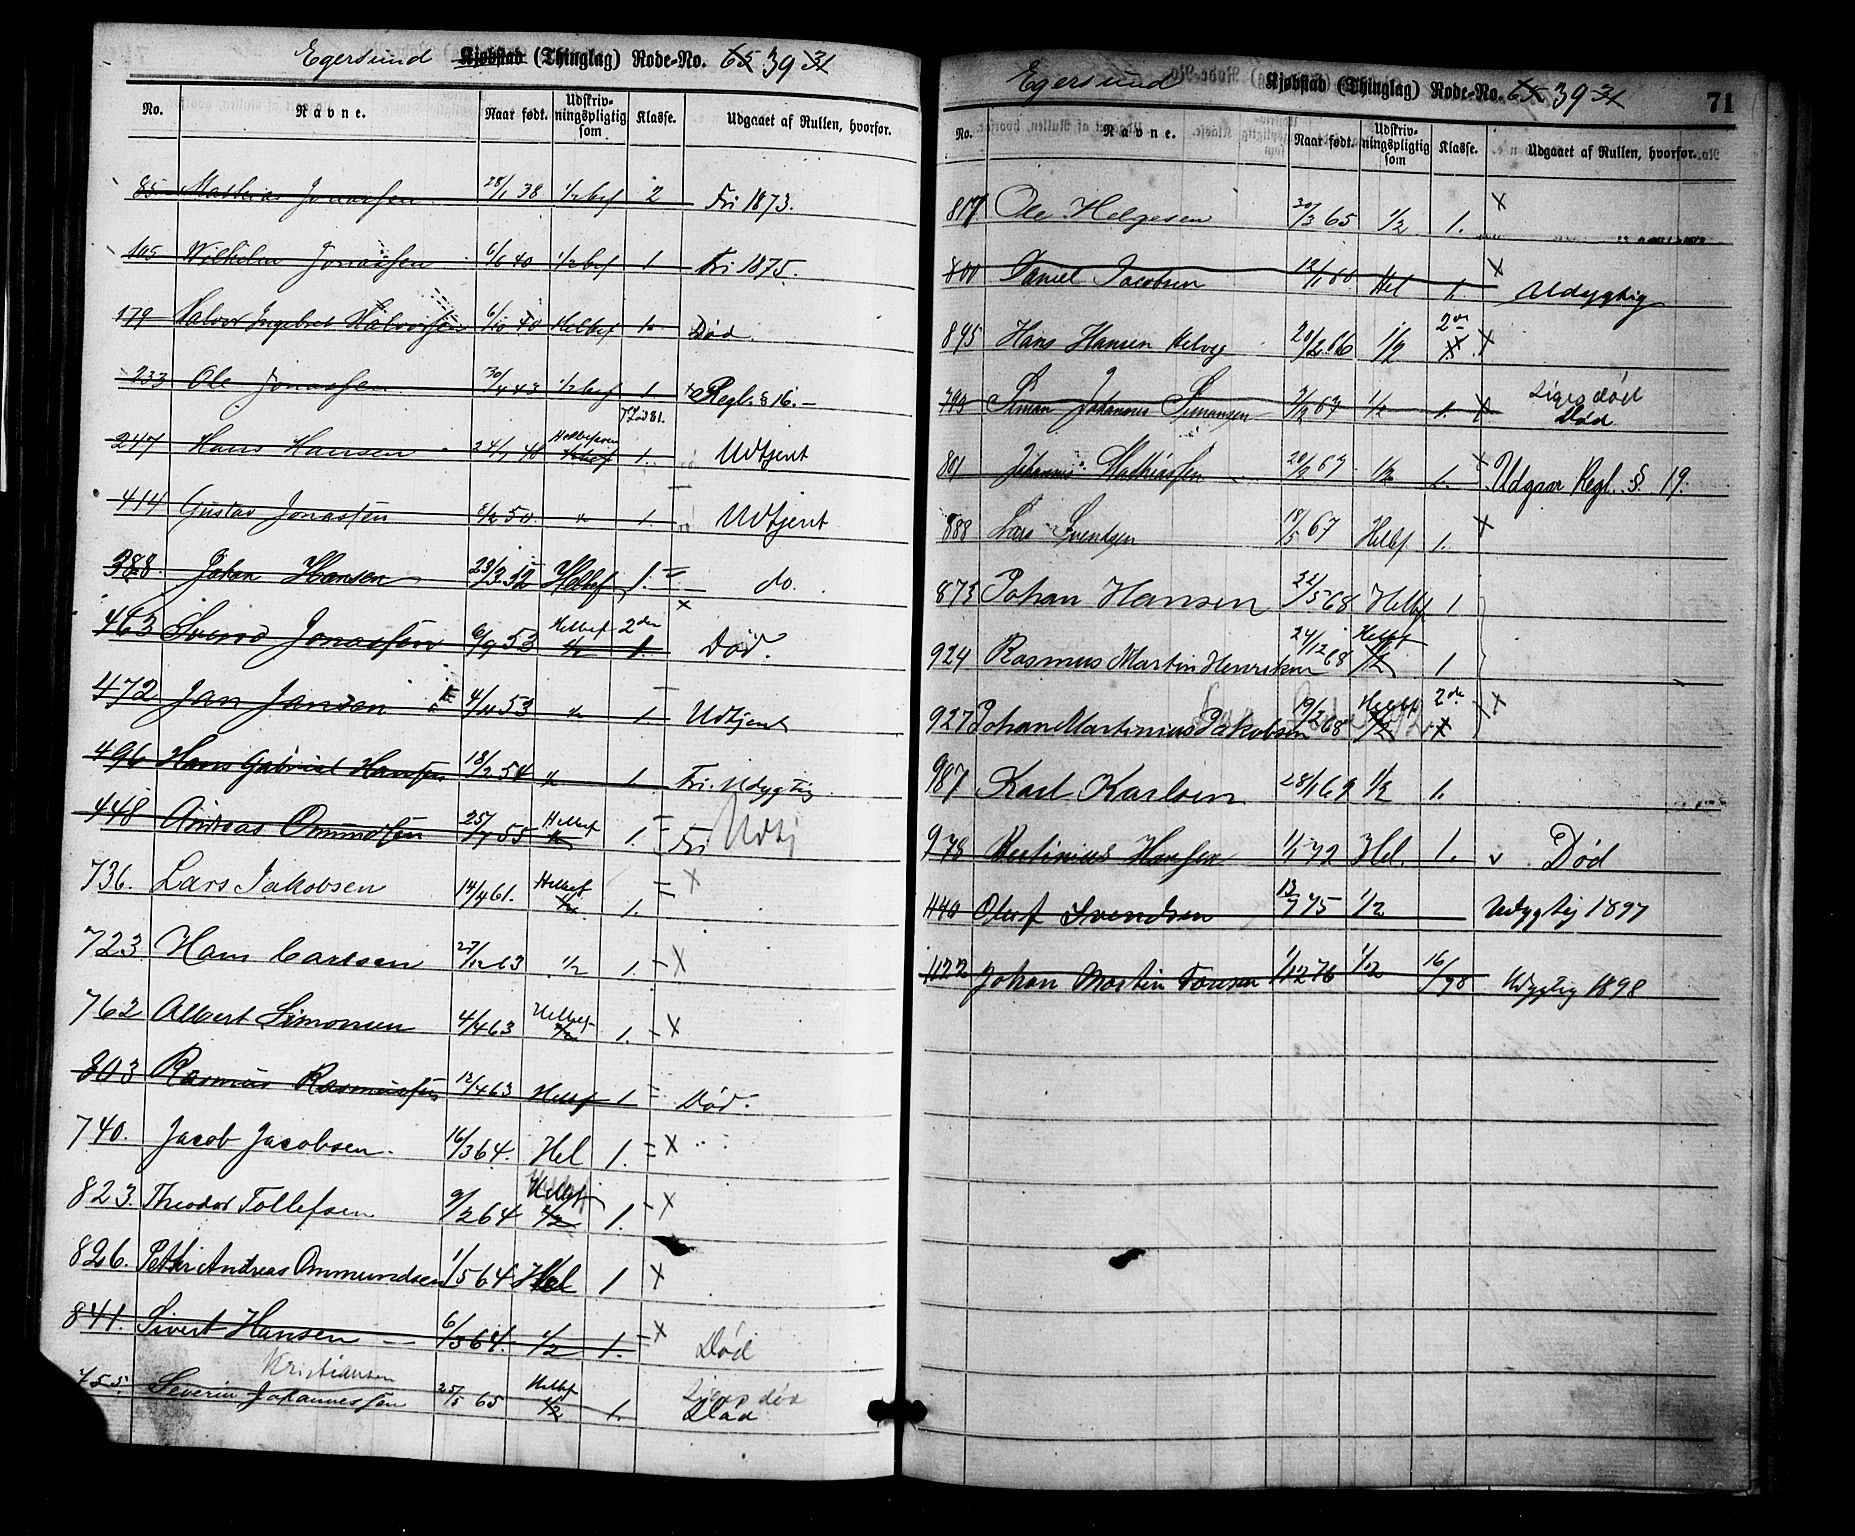 Egersund Kjøbstad (Thinglag) Rode-No. 65 39 31
No. Navne. Naar født. Udskrivningspligtig som Klasse. Udgaaet af Rullen, hvorfor.
85 Mathias Jonassen 28/1 38 1/2 bef 2 Fri 1873.
105 Wilhelm Jonassen 6/6 40 1/2 bef 1 Fri 1875.
179 Halvor Ingebret Halvorsen 6/10 40 Helbef 1 Død.
233 Ole Jonassen 30/4 43 1/2 bef 1 Regl. § 16.
247 Hans Hansen 24/1 48 Helbefaren 1. Udtjent
414 Gustav Jonassen 8/2 50. " 1. Udtjent
388. Johan Hansen 23/3 52 Helbef 1. do.
463 Svend Jonassen 6/9 53 Helbef 1/2 2den 1. Død.
472 Jan Jansen 4/11 53 " 1. Udtjent
496 Hans Gabriel Hansen 18/2 54 " 1. Fri. Udygtig
448 Andreas Ommundsen 25/7 55 Helbef 1. Fri Udtj
736. Lars Jakobsen 14/4 61. Helbef 1/2 1. X
723. Hans Carlsen 27/12 63 1/2 1. X
762 Albert Simonsen 4/4 63 Helbef 1/2 1. X
803 Rasmus Rasmussen 12/4 63 Helbf 1 Død.
740. Jacob Jacobsen. 16/3 64. Hel 1. X
823. Theodor Tollefsen 9/2 64 Helbf 1/2 1. X
826. Peter Andreas Ommundsen 1/5 64 Hel 1 X
841. Sivert Hansen 6/3 64. 1/2 1. X Død
Kristiansen
755. Severin Johannessen 25/5 65 Helbf 1/2 1. Siges død Død
Egersund Kjøbstad (Thinglag) Rode-No. 65 39 31 71
No. Navne. Naar født. Udskrivningspligtig som Klasse. Udgaaet af Rullen, hvorfor.
817 Ole Helgesen 30/3 65 1/2 1. X
800 Daniel Jacobsen 12/1 60. Hel 1. X Udygtig
895 Hans Hansen Helvig 20/2 66 1/2 2den X
793 Siman Johannes Simonsen 7/9 67 1/2 1. X Siges død Død
801 Johannes Mathiassen 20/2 67 1/2 1. X Udgaar Regl. § 19.
888 Lars Svendsen 18/5 67 Helbf 1. X
873 Johan Hansen 22/5 68 Helbf 1
924 Rasmus Martin Henriksen 24/12 68 Helbf 1/2 1
927 Johan Martinius Jakobsen 19/2 68 Helbf 1/2 2de X X
987 Karl Karlsen 28/1 69 1/2 1.
978 Bertinius Hansen 1/1 72 Hel. 1. v Død
1140 Oluf Svendsen 13/7 75 1/2 Udygtig 1897
1122 Johan Martin Tonsen 1/12 76 1/2 16/98 Udygtig 1898